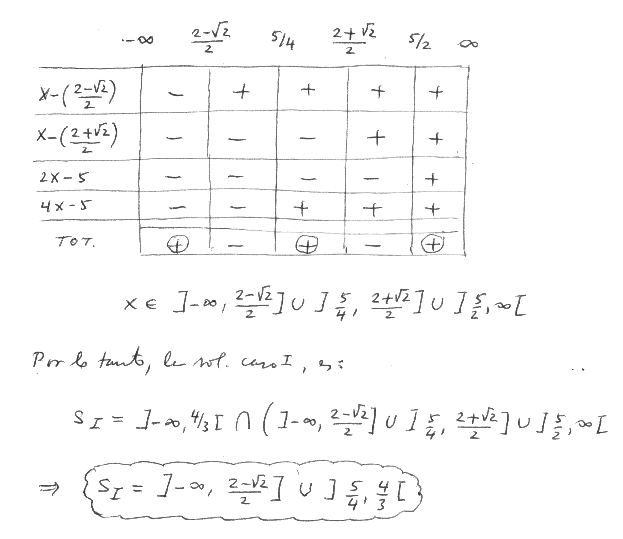 -∞ (2-√2)/2 5/4 (2+√2)/2 5/2 ∞
x-((2-√2)/2) - + + + +
x-((2+√2)/2) - - - + +
2x-5 - - - - +
4x-5 - - + + +
TOT. ⊕ - ⊕ - ⊕
x ∈ ]-∞, (2-√2)/2] ∪ ]5/4, (2+√2)/2] ∪ ]5/2, ∞[
Por lo tanto, la sol. caso I, es:
S_I = ]-∞, 4/3[ ∩ (]-∞, (2-√2)/2] ∪ ]5/4, (2+√2)/2] ∪ ]5/2, ∞[
⇒ S_I = ]-∞, (2-√2)/2] ∪ ]5/4, 4/3[